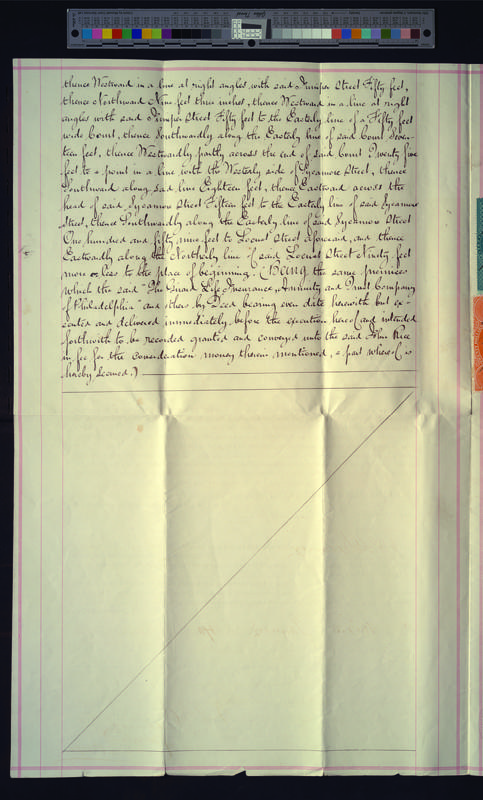 thence Westward in a line at right angles with said Juniper Street Fifty feet,
thence Northward Nine feet three inches, thence Westward in a line at right
angles with said Juniper Street Fifty feet to the Easterly line of a Fifty feet
wide Court, thence Southwardly along the Easterly line of said Court Seven-
teen feet, thence Westwardly partly across the end of said Court Twenty five
feet to a point in a line with the Westerly side of Sycamore Street, thence
Southward along said line Eighteen feet, thence Eastward across the
head of said Sycamore Street Fifteen feet to the Easterly line of said Sycamore
Street, thence Southwardly along the Easterly line of said Sycamore Street
One hundred and fifty nine feet to Locust Street aforesaid, and thence
Eastwardly along the Northerly line of said Locust Street Ninety feet
more or less to the place of beginning. (Being the same premises
which the said "The Girard Life Insurance, Annuity and Trust Company
of Philadelphia" and others by Deed bearing even date herewith but exe-
cuted and delivered immediately before the execution hereof and intended
forthwith to be recorded granted and conveyed unto the said John Rice
in fee for the consideration money therein mentioned, a part whereof is
hereby secured.)